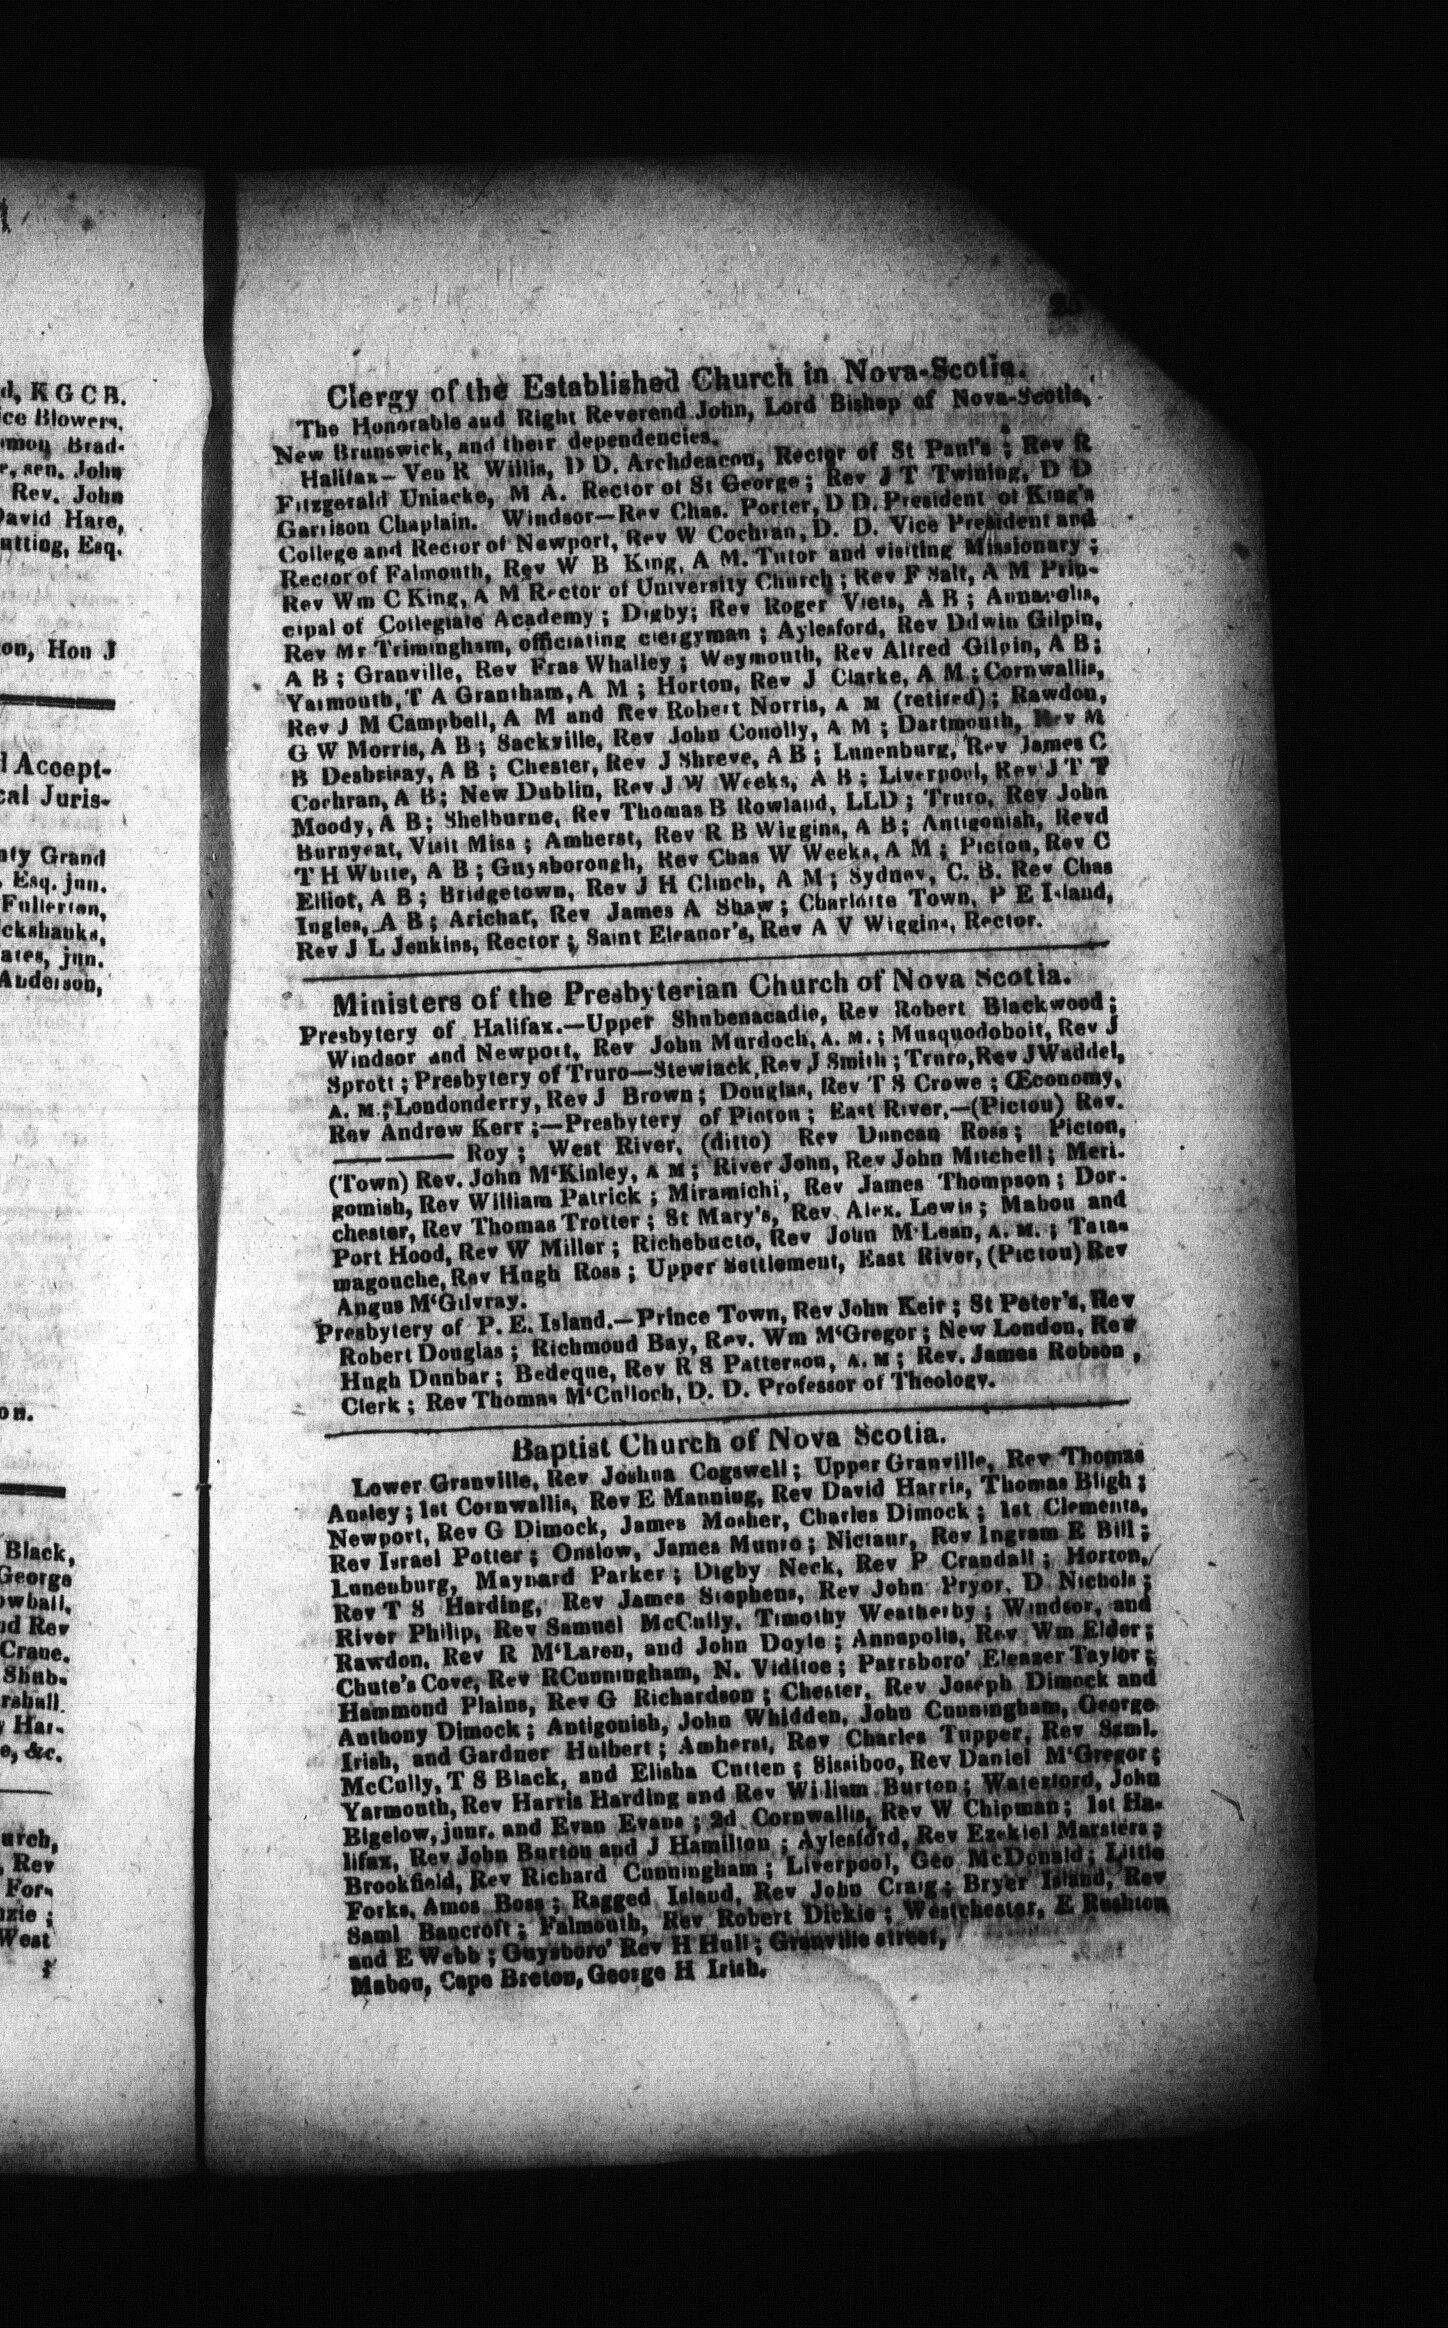 d, K G C B.
ice Blowers,
mon, Brad-
r, sen. John
Rev. John
David Hare,
utting, Esq.
on, Hon J
d Accept-
cal Juris-
nty Grand
, Esq. jun.
Fullerton,
ckshanks,
ates, jun.
Anderson,
on.
Black,
George
owball,
nd Rev
Crane.
Shub-
rshall.
y Har-
e, &c.
urch,
, Rev
For-
nzie ;
West
;
25
Clergy of the Established Church in Nova-Scotia.
The Honorable aud Right Reverend John, Lord Bishop of Nova-Scotia,
New Brunswick, and their dependencies.
Halifax—Ven R Willis, D D. Archdeacon, Rector of St Paul's ; Rev R
Fitzgerald Uniacke, M A. Rector of St George ; Rev J T Twining, D D
Garrison Chaplain. Windsor—Rev Chas. Porter, D D. President of King's
College and Rector of Newport, Rev W Cochran, D. D. Vice President and
Rector of Falmouth, Rev W B King, A M. Tutor and visiting Missionary ;
Rev Wm C King, A M Rector of University Church ; Rev F Salt, A M Prin-
cipal of Collegiate Academy ; Digby; Rev Roger Viets, A B ; Annapolis,
Rev Mr Trimingham, officiating clergyman ; Aylesford, Rev Ddwin Gilpin,
A B ; Granville, Rev Fras Whalley ; Weymouth, Rev Alfred Gilpin, A B;
Yarmouth, T A Grantham, A M ; Horton, Rev J Clarke, A M ; Cornwallis,
Rev J M Campbell, A M and Rev Robert Norris, A M (retired) ; Rawdon,
G W Morris, A B ; Sackville, Rev John Conolly, A M ; Dartmouth, Rev M
B Desbrisay, A B ; Chester, Rev J Shreve, A B ; Lunenburg, Rev James C
Cochran, A B; New Dublin, Rev J W Weeks, A B ; Liverpool, Rev J T T
Moody, A B; Shelburne, Rev Thomas B Rowland, LLD ; Truro, Rev John
Burnyeat, Visit Miss ; Amherst, Rev R B Wiggins, A B; Antigonish, Revd
T H White, A B ; Guysborough, Rev Chas W Weeks, A M ; Picton, Rev C
Elliot, A B ; Bridgetown, Rev J H Clinch, A M ; Sydney, C. B. Rev Chas
Ingles, A B ; Arichat, Rev James A Shaw ; Charlotte Town, P E Island,
Rev J L Jenkins, Rector ; Saint Eleanor's, Rev A V Wiggins, Rector.
Ministers of the Presbyterian Church of Nova Scotia.
Presbytery of Halifax.—Upper Shubenacadie, Rev Robert Blackwood ;
Windsor and Newport, Rev John Murdoch, A. M. ; Musquodoboit, Rev J
Sprott ; Presbytery of Truro—Stewiack, Rev J Smith ; Truro, Rev J Waddel,
A. M. ; Londonderry, Rev J Brown ; Douglas, Rev T S Crowe ; Œconomy,
Rev Andrew Kerr ;—Presbytery of Picton ; East River,—(Pictou) Rev.
—— —— Roy ; West River, (ditto) Rev Duncan Ross ; Picton,
(Town) Rev. John M'Kinley, A M ; River John, Rev John Mitchell ; Meri-
gomish, Rev William Patrick ; Miramichi, Rev James Thompson ; Dor-
chester, Rev Thomas Trotter ; St Mary's, Rev Alex. Lewis ; Mabou and
Port Hood, Rev W Miller ; Richebucto, Rev John M'Lean, A. M. ; Tata-
magouche, Rev Hugh Ross ; Upper Settlement, East River, (Pictou) Rev
Angus M'Gilvray.
Presbytery of P. E. Island.—Prince Town, Rev John Keir ; St Peter's, Rev
Robert Douglas ; Richmond Bay, Rev. Wm M'Gregor ; New London, Rev
Hugh Dunbar ; Bedeque, Rev R S Patterson, A. M ; Rev. James Robson,
Clerk ; Rev Thomas M'Culloch, D. D. Professor of Theology.
Baptist Church of Nova Scotia.
Lower Granville, Rev Joshua Cogswell ; Upper Granville, Rev Thomas
Ansley ; 1st Cornwallis, Rev E Manning, Rev David Harris, Thomas Bligh ;
Newport, Rev G Dimock, James Mosher, Charles Dimock ; 1st Clements,
Rev Israel Potter ; Onslow, James Munro ; Nictaur, Rev Ingram E Bill ;
Lunenburg, Maynard Parker ; Digby Neck, Rev P Crandall ; Horton,
Rev T S Harding, Rev James Stephens, Rev John Pryor, D Nichols ;
River Philip, Rev Samuel McCully, Timothy Weatherby ; Windsor, and
Rawdon, Rev R M'Laren, and John Doyle ; Annapolis, Rev Wm Elder ;
Chute's Cove, Rev RCunningham, N. Viditoe ; Parrsboro' Eleazer Taylor ;
Hammond Plains, Rev G Richardson ; Chester, Rev Joseph Dimock and
Anthony Dimock ; Antigonish, John Whidden, John Cunningham, George
Irish, and Gardner Hulbert ; Amherst, Rev Charles Tupper, Rev Saml.
McCully, T S Black, and Elisha Cutten ; Sissiboo, Rev Daniel M'Gregor ;
Yarmouth, Rev Harris Harding and Rev William Burton ; Waterford, John
Bigelow, junr. and Evan Evans ; 2d Cornwallis, Rev W Chipman ; 1st Ha-
lifax, Rev John Burton and J Hamilton ; Aylesford, Rev Ezekiel Marsters ;
Brookfield, Rev Richard Cunningham ; Liverpool, Geo McDonald ; Little
Forks, Amos Boss ; Ragged Island, Rev John Craig ; Bryer Island, Rev
Saml Bancroft ; Falmouth, Rev Robert Dickie ; Westchester, E Rushton
and E Webb ; Guysboro' Rev H Hull ; Granville street,
Mabou, Cape Breton, George H Irish.